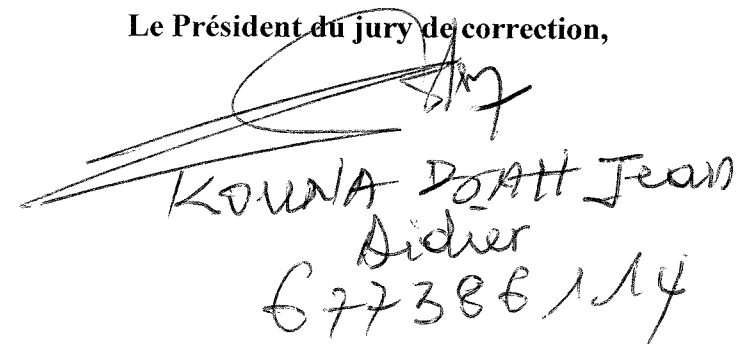 Le Président du jury de correction,
KOUNA DOAH Jean
Didier
677386114